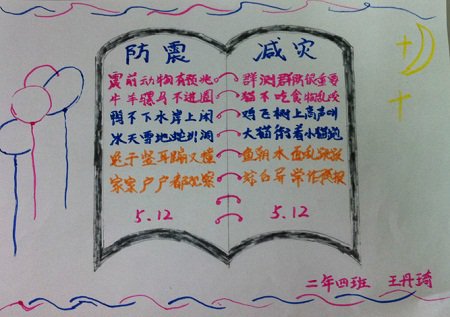 防震
震前动物有预兆
牛羊骡马不进圈
鸭不下水岸上闹
冰天雪地蛇出洞
兔子竖耳蹦又撞
家家户户都观察
5.12
减灾
群测群防很重要
不吃食乱咬
鸡飞树上高声叫
大猫衔着小猫跑
鱼水面乱
综合异常作预报
5.12
二年四班 王丹琦